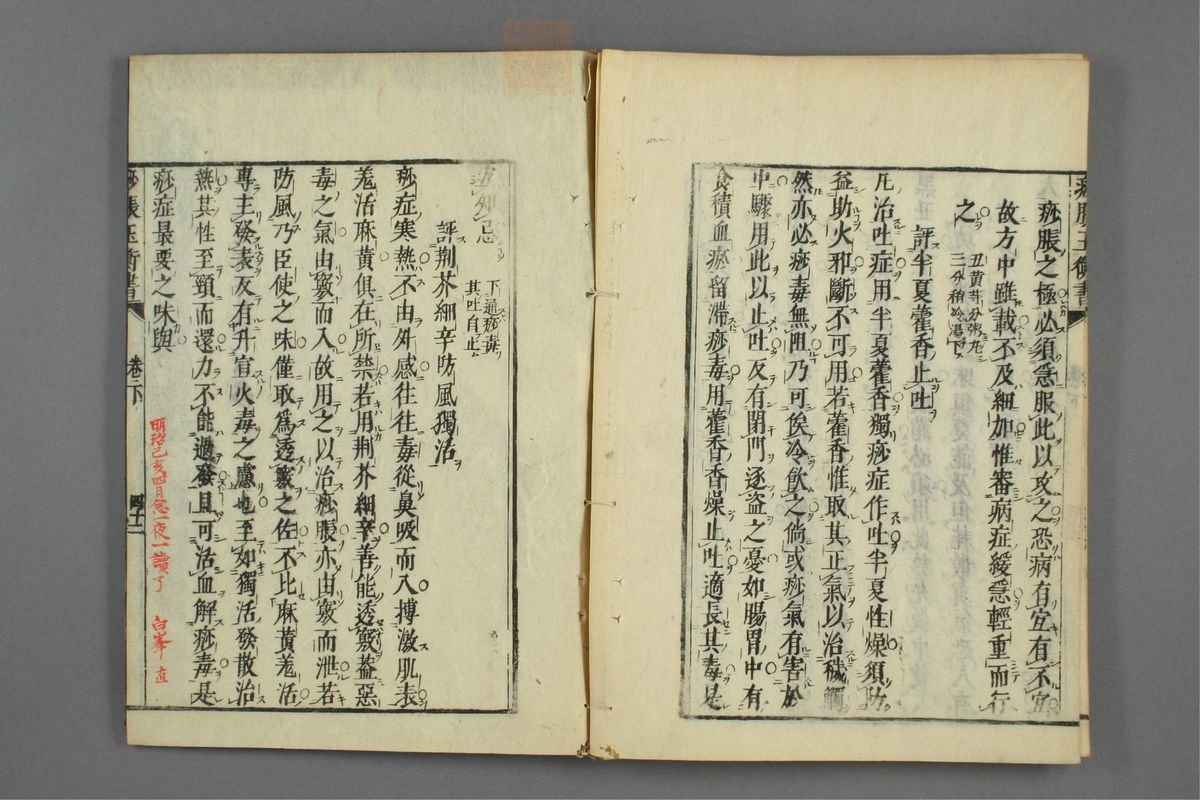 痧脹玉衡書
痧脹之極必須急服此以攻之恐病有宜有不宜
故方中雖載不及細加惟審病症緩急輕重而行
之
丑黃芩分粥丸
三分稍冷湯下
評半夏藿香止吐
凡治吐症用半夏藿香獨痧症作吐半夏性燥須防
益助火邪斷不可用若藿香惟取其正氣以治穢觸
然亦必痧毒無阻乃可俟冷飲之倘或痧氣有害於
中驟用此以止吐反有閉門逐盜之憂如腸胃中有
食積血瘀留滯痧毒用藿香香燥止吐適長其毒是
所知忌
下過痧毒
其吐自止
評荆芥細辛防風獨活
痧症寒熱不由外感往往毒從鼻吸而入搏激肌表
羗活麻黃俱在所禁若用荆芥細辛善能透竅葢惡
毒之氣由竅而入故用之以治痧脹亦由竅而泄若
防風乃臣使之味僅取爲透竅之佐不比麻黃羗活
專主發表反有升宣火毒之慮也至如獨活發散治
熱其性至頸而還力不能過發且可活血解痧毒是
痧症最要之味與
痧脹玉衡書
卷下
四十二
明治己亥四月念一夜一讀了
白峯